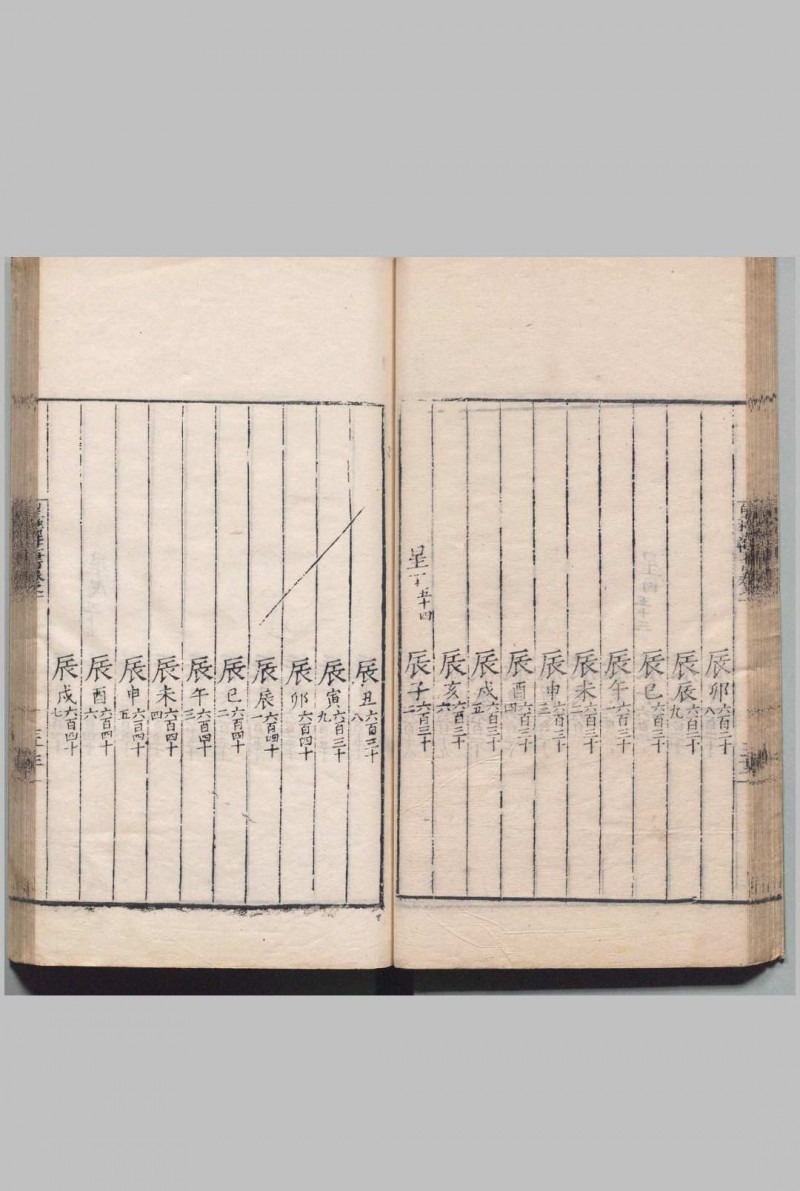 辰卯六百二十八
辰辰六百二十九
辰巳六百三十
辰午六百三十一
辰未六百三十二
辰申六百三十三
辰酉六百三十四
辰戌六百三十五
辰亥六百三十六
星丁五十四 辰子六百三十
辰丑六百三十八
辰寅六百三十九
辰卯六百四十
辰辰六百四十一
辰巳六百四十二
辰午六百四十三
辰未六百四十四
辰申六百四十五
辰酉六百四十六
辰戌六百四十七